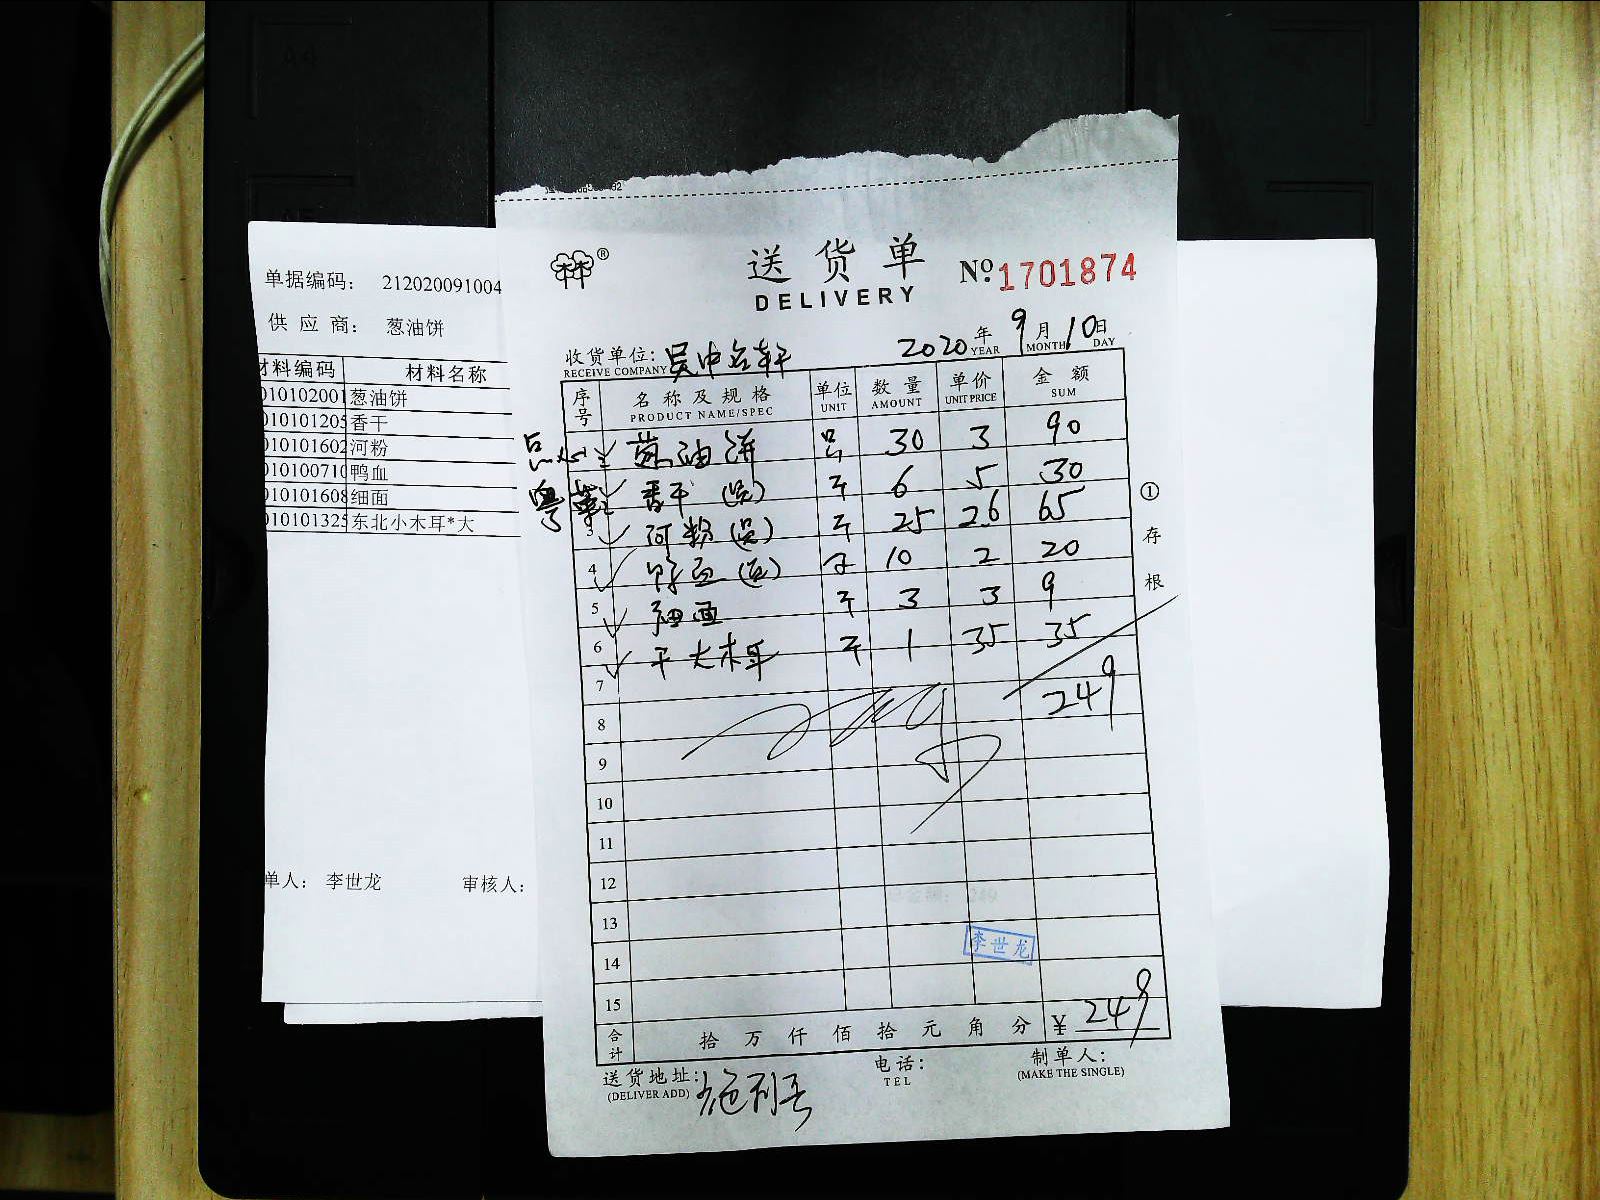 单据编码： 212020091004
供 应 商： 葱油饼
材料编码 材料名称
010102001 葱油饼
010101205 香干
010101602 河粉
010100710 鸭血
010101608 细面
010101325 东北小木耳*大
单人： 李世龙 审核人：
林®
送货单 Nº1701874
DELIVERY
收货单位: 吴中名轩 2020年 9月10日
RECEIVE COMPANY YEAR MONTH DAY
序号 名称及规格 单位 数量 单价 金额
PRODUCT NAME/SPEC UNIT AMOUNT UNIT PRICE SUM
点心 葱油饼 30 3 90
粤菜 香干 斤 6 5 30
3 河粉 斤 25 2.6 65
4 10 2 20
5 细面 斤 3 3 9
6 干大木耳 斤 1 35 35
7 249
8
9
10
11
12
13
14
15
①存根
总金额： 249
李世龙
合计 拾 万 仟 佰 拾 元 角 分 ¥ 249
送货地址: 电话: 制单人:
(DELIVER ADD) TEL (MAKE THE SINGLE)